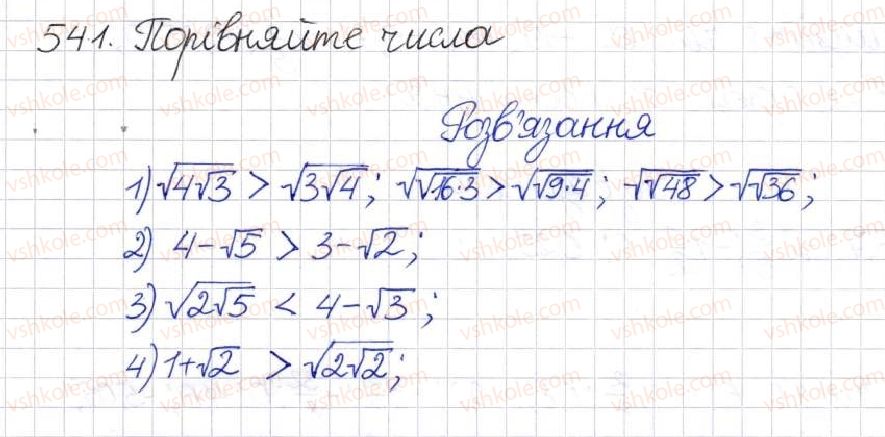 541. Порівняйте числа
Розв'язання
1) √(4√3) > √(3√4); √√(16·3) > √√(9·4); √√48 > √√36;
2) 4-√5 > 3-√2;
3) √(2√5) < 4-√3;
4) 1+√2 > √(2√2);